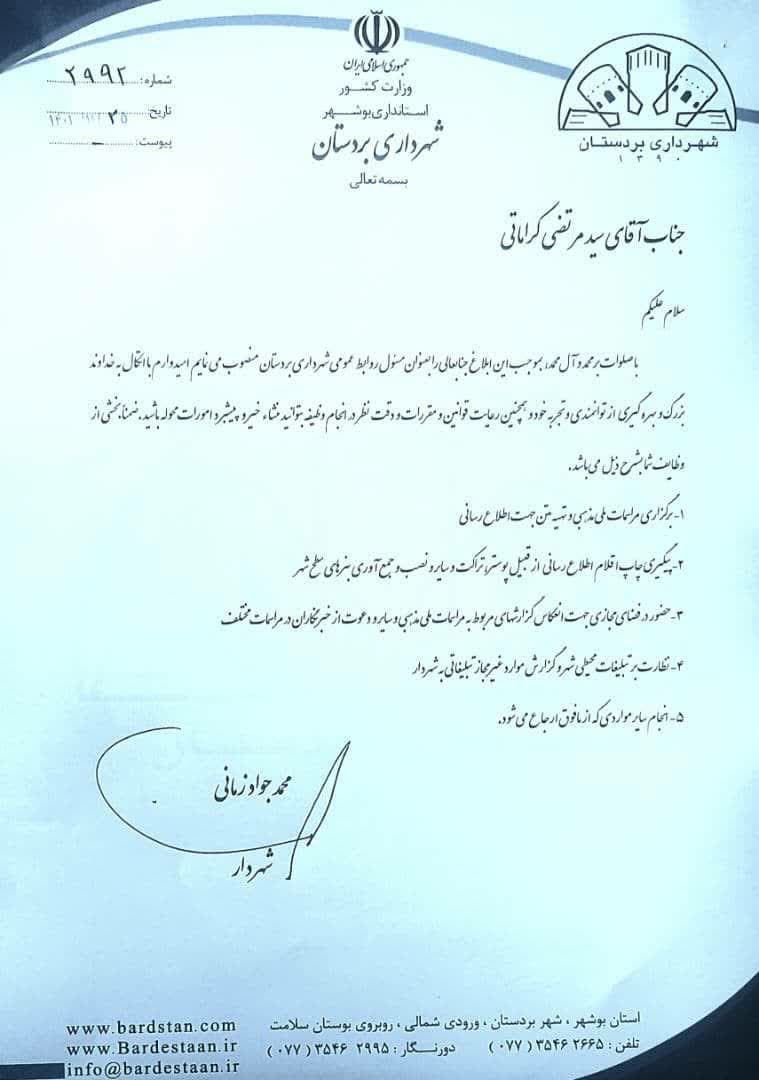 جمهوری اسلامی ایران
وزارت کشور
استانداری بوشهر
شهرداری بردستان
بسمه تعالی
شهرداری بردستان
۱۳۹۰
شماره: ۲۹۹۲
تاریخ: ۲۵
پیوست: -
جناب آقای سید مرتضی کراماتی
سلام علیکم
با صلوات بر محمد و آل محمد، بموجب این ابلاغ جنابعالی را بعنوان مسئول روابط عمومی شهرداری بردستان منصوب می نمایم امیدوارم با اتکال به خداوند
بزرگ و بهره گیری از توانمندی و تجربه خود و همچنین رعایت قوانین و مقررات و دقت نظر در انجام وظیفه بتوانید منشاء خیر و پیشبرد امورات محوله باشید. ضمنا بخشی از
وظایف شما بشرح ذیل می باشد.
۱- برگزاری مراسمات ملی مذهبی و تهیه متن جهت اطلاع رسانی
۲- پیگیری چاپ اقلام اطلاع رسانی از قبیل پوستر، تراکت و سایر و نصب و جمع آوری بنرهای سطح شهر
۳- حضور در فضای مجازی جهت انعکاس گزارشهای مربوط به مراسمات ملی مذهبی و سایر و دعوت از خبرنگاران در مراسمات مختلف
۴- نظارت بر تبلیغات محیطی شهر و گزارش موارد غیرمجاز تبلیغاتی به شهردار
۵- انجام سایر مواردی که از مافوق ارجاع می شود.
محمد جواد زمانی
شهردار
استان بوشهر ، شهر بردستان ، ورودی شمالی ، روبروی بوستان سلامت
تلفن : ۲۶۶۵ ۳۵۴۶ (۰۷۷) دورنگار : ۲۹۹۵ ۳۵۴۶ (۰۷۷)
www.bardstan.com
www.Bardestaan.ir
info@bardestaan.ir